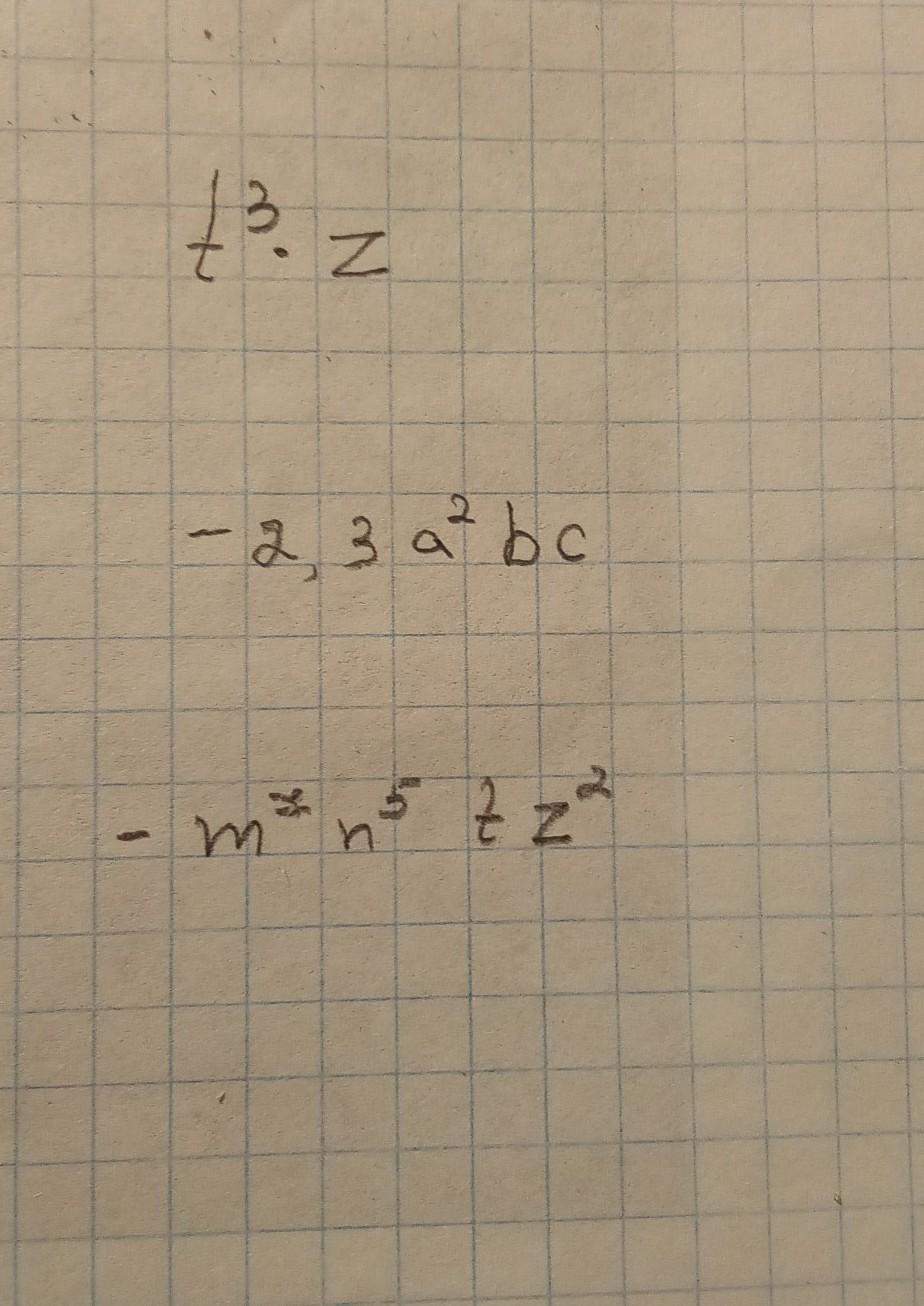 t³· z
- 2,3 a² bc
- m n⁵ t z²